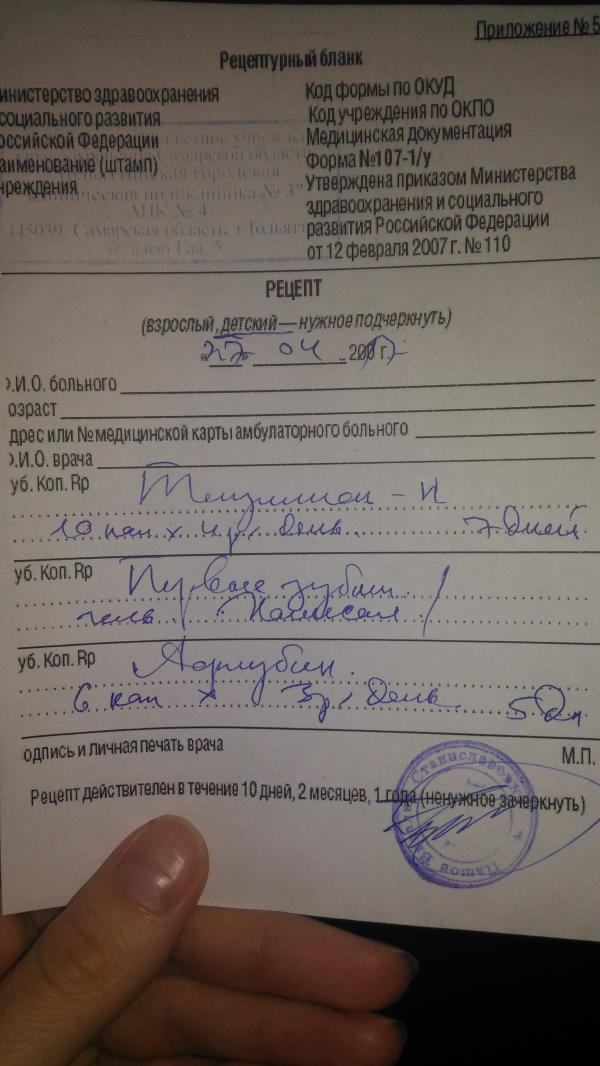 Приложение № 5
Рецептурный бланк
инистерство здравоохранения
социального развития
оссийской Федерации
аименование (штамп)
чреждения
Код формы по ОКУД
Код учреждения по ОКПО
Медицинская документация
Форма №107-1/у
Утверждена приказом Министерства
здравоохранения и социального
развития Российской Федерации
от 12 февраля 2007 г. № 110
Самарской области
городская
поликлиника № 3"
445039, Самарская область, г.Тольятти
РЕЦЕПТ
(взрослый, детский — нужное подчеркнуть)
«27» 04 200 г.
.И.О. больного
озраст
дрес или № медицинской карты амбулаторного больного
.И.О. врача
уб. Коп. Rp
10 кап х 4 р. день 7 дней
уб. Коп. Rp Первые зубки
гель
уб. Коп. Rp
6 кап х 3 р. день 5 дн
одпись и личная печать врача
М.П.
Рецепт действителен в течение 10 дней, 2 месяцев, 1 года (ненужное зачеркнуть)
Станиславович